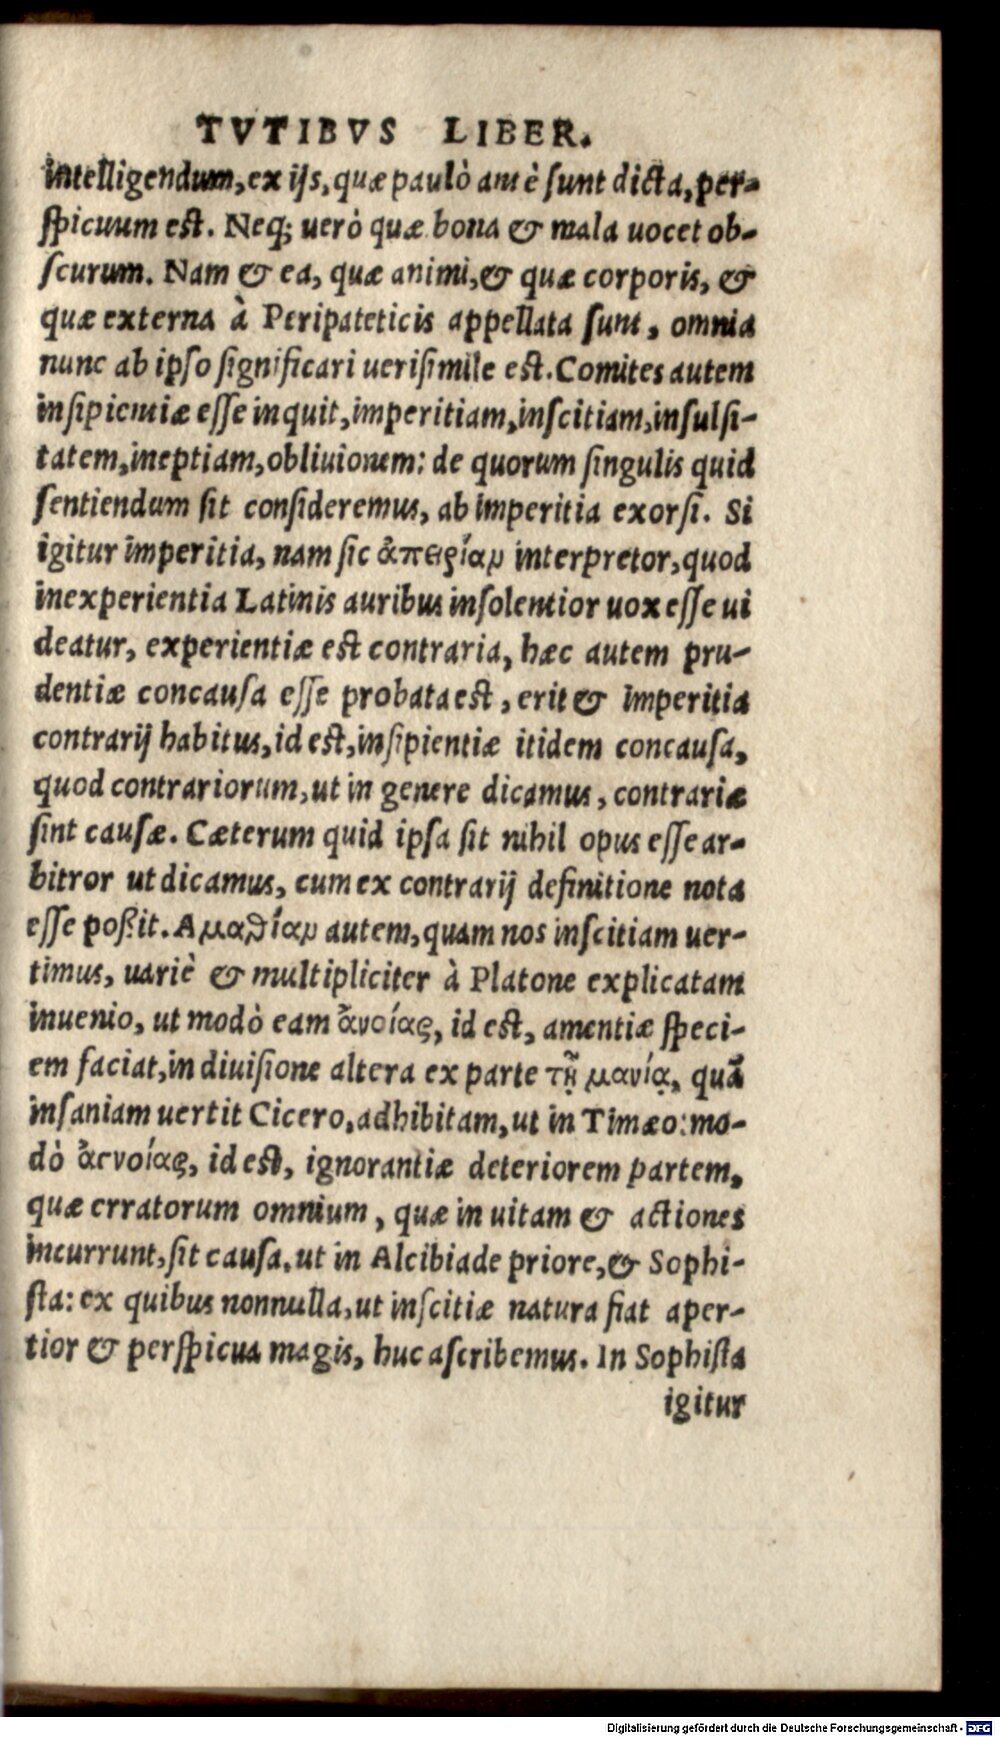 TVTIBVS LIBER.
intelligendum, ex ijs, quæ paulò antè sunt dicta, per-
spicuum est. Neq; uerò quæ bona & mala uocet ob-
scurum. Nam & ea, quæ animi, & quæ corporis, &
quæ externa à Peripateticis appellata sunt, omnia
nunc ab ipso significari uerisimile est. Comites autem
insipientiæ esse inquit, imperitiam, inscitiam, insulsi-
tatem, ineptiam, obliuionem: de quorum singulis quid
sentiendum sit consideremus, ab imperitia exorsi. Si
igitur imperitia, nam sic ἀπειρίαν interpretor, quod
inexperientia Latinis auribus insolentior uox esse ui
deatur, experientiæ est contraria, hæc autem pru-
dentiæ concausa esse probata est, erit & imperitia
contrarij habitus, id est, insipientiæ itidem concausa,
quod contrariorum, ut in genere dicamus, contrariæ
sint causæ. Cæterum quid ipsa sit nihil opus esse ar-
bitror ut dicamus, cum ex contrarij definitione nota
esse poßit. Αμαθίαν autem, quam nos inscitiam uer-
timus, uariè & multipliciter à Platone explicatam
inuenio, ut modò eam ἀνοίας, id est, amentiæ speci-
em faciat, in diuisione altera ex parte τῇ μανίᾳ, quã
insaniam uertit Cicero, adhibitam, ut in Timæo: mo-
dò ἀγνοίας, id est, ignorantiæ deteriorem partem,
quæ erratorum omnium, quæ in uitam & actiones
incurrunt, sit causa, ut in Alcibiade priore, & Sophi-
sta: ex quibus nonnulla, ut inscitiæ natura fiat aper-
tior & perspicua magis, huc ascribemus. In Sophista
igitur
Digitalisierung gefördert durch die Deutsche Forschungsgemeinschaft - DFG